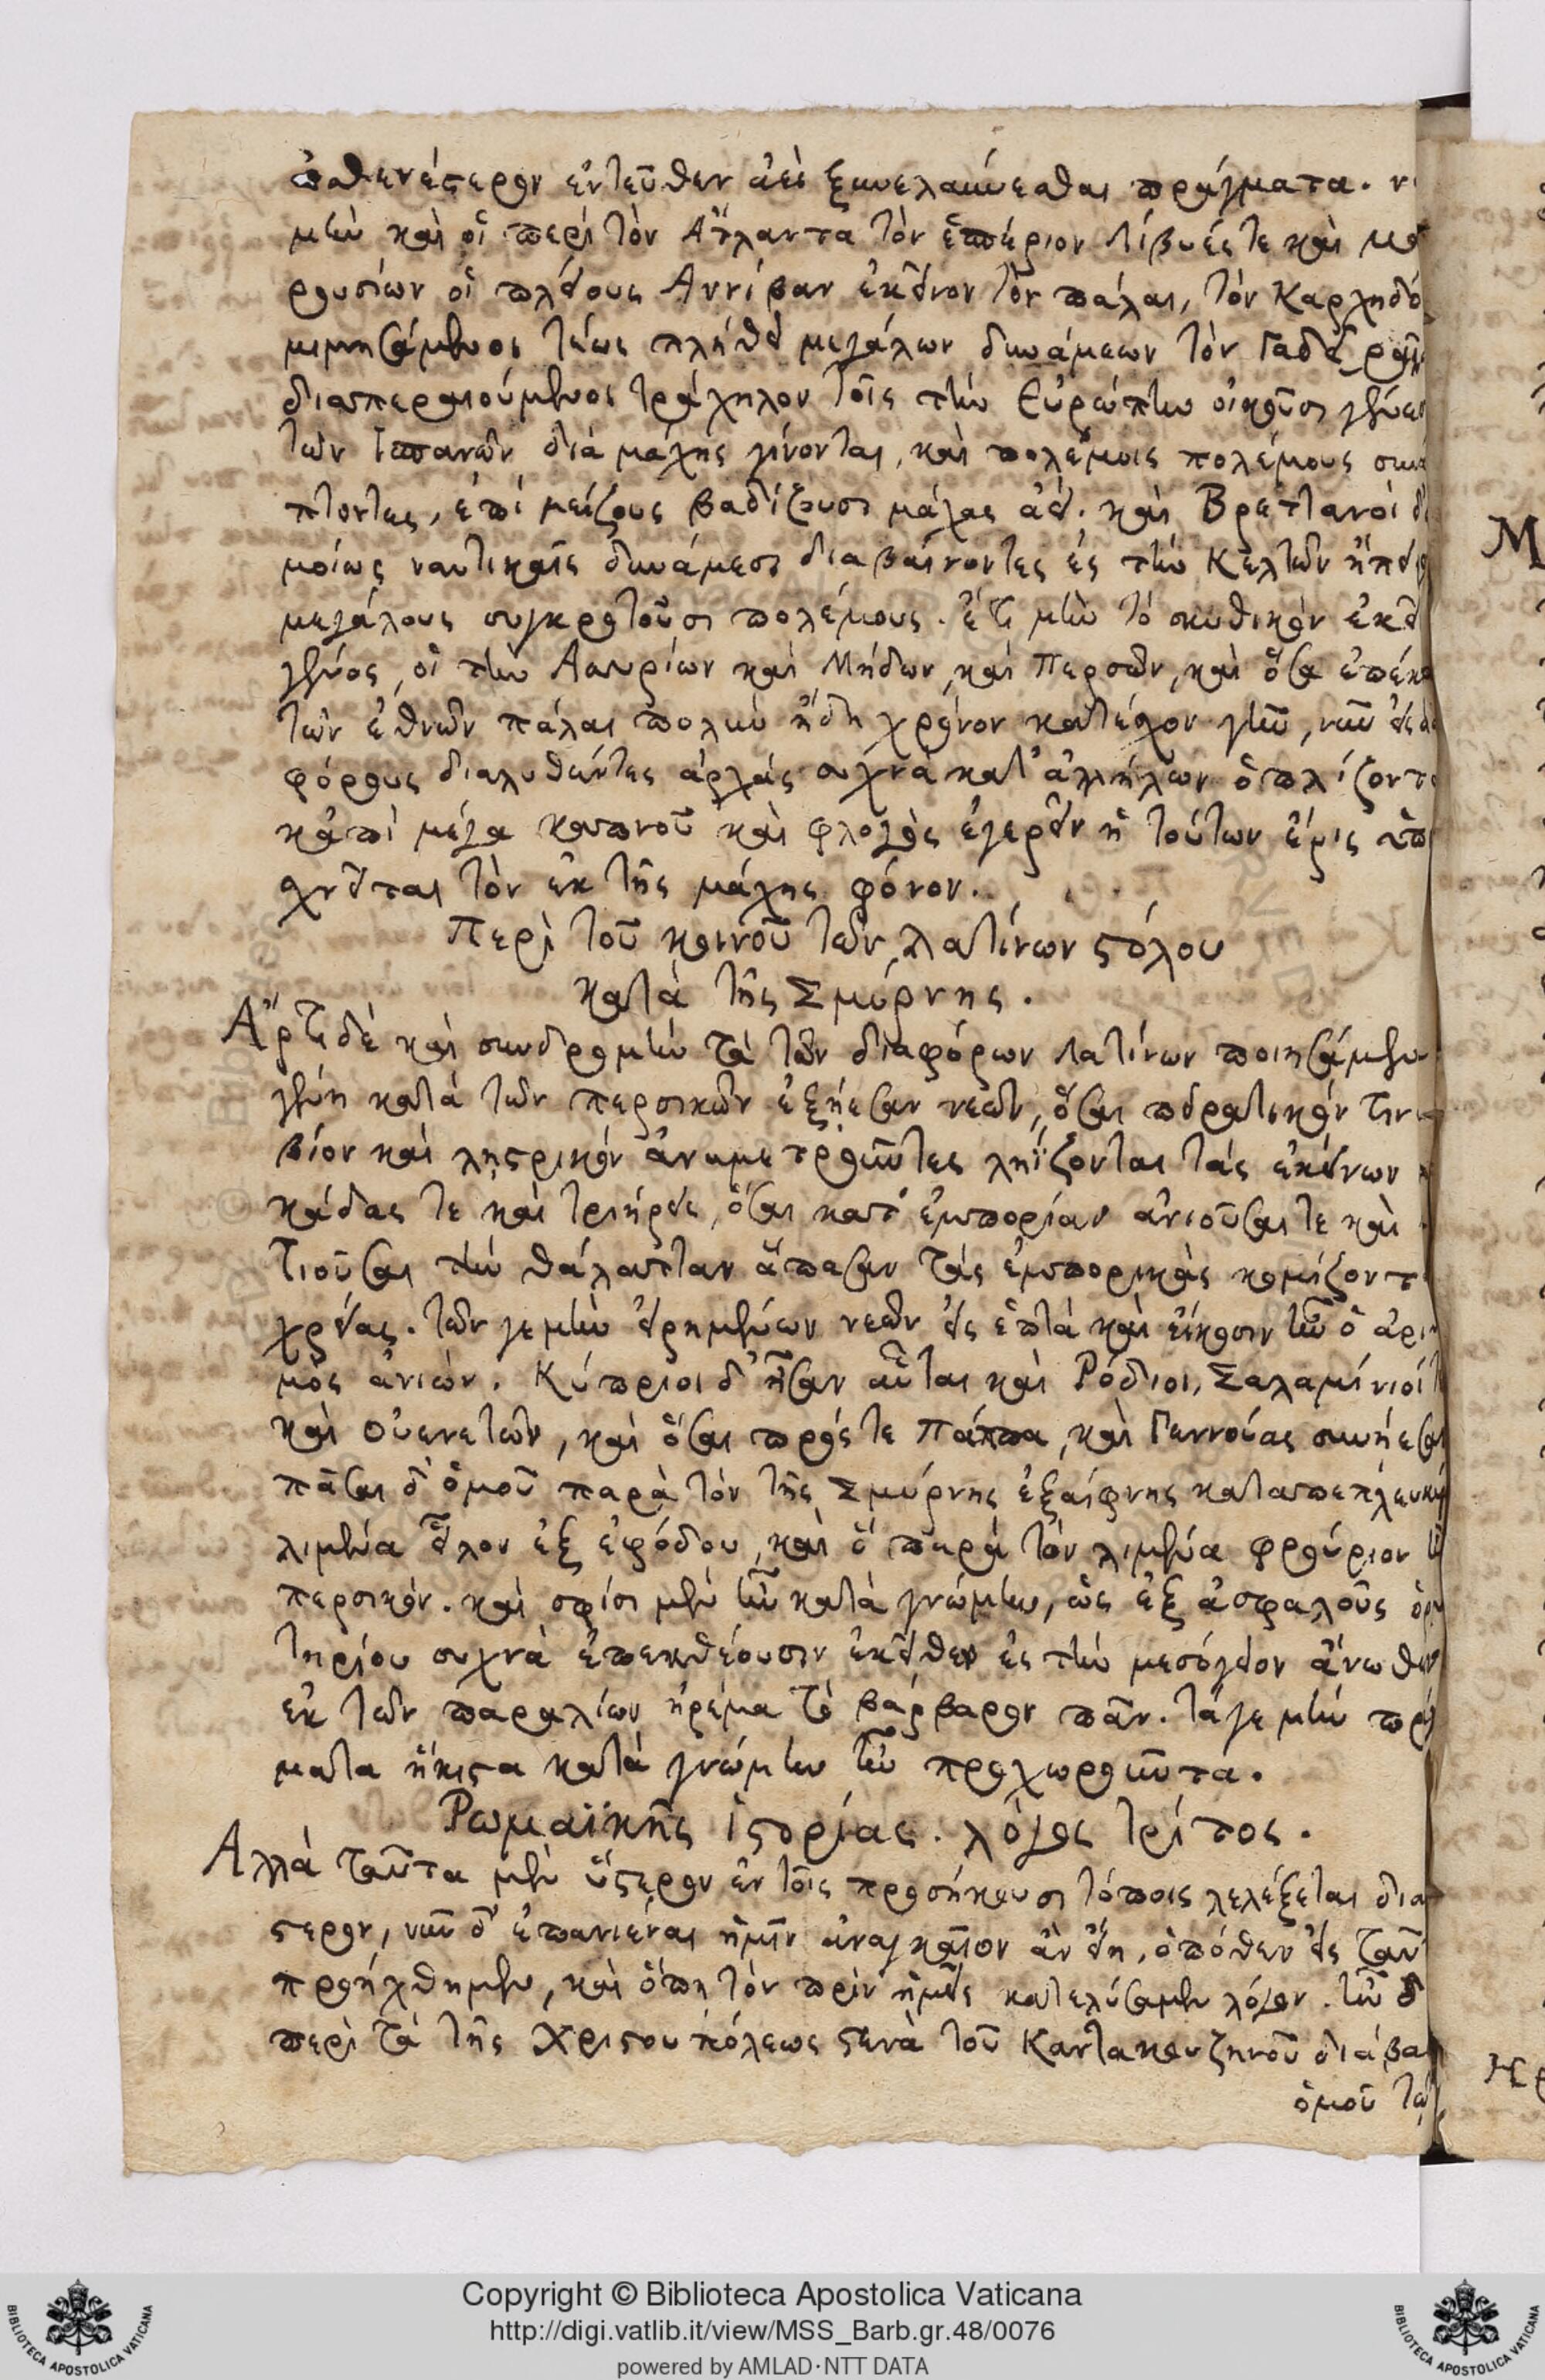 ἀσθενέστερον ἐντεῦθεν ἀεὶ ξυνελαύνεσθαι πράγματα.
μὲν καὶ οἱ περὶ τὸν Ἄτλαντα τὸν ἑσπέριον Λίβυές τε καὶ
ρουσίων οἱ πλείους Αννίβαν ἐκεῖνον τὸν πάλαι, τὸν Καρχηδό
μιμησάμενοι τέως πλήθει μεγάλων δυνάμεων τὸν Γαδείρων
διαπεραιούμενοι τράχηλον τοῖς τὴν Εὐρώπην οἰκοῦσι γένεσι
τῶν Ἱσπανῶν διὰ μάχης γίνονται, καὶ πολέμοις πολέμους συνά
πτοντες, ἐπὶ μείζους βαδίζουσι μάχας ἀεί. καὶ Βρεττανοὶ δ'
μοίως ναυτικαῖς δυνάμεσι διαβαίνοντες ἐς τὴν Κελτῶν ἤπει
μεγάλους συγκροτοῦσι πολέμους. ἔτι μὴν τὸ σκυθικὸν ἐκεῖ
γένος, οἳ τὴν Ασσυρίων καὶ Μήδων, καὶ Περσῶν, καὶ ὅσα ἐπέκει
τῶν ἐθνῶν πάλαι πολὺν ἤδη χρόνον κατέχον γῆν, νῦν εἰς δι
φόρους διαλυθέντες ἀρχάς συχνὰ κατ' ἀλλήλων ὁπλίζοντα
κἀπὶ μέγα καπνοῦ καὶ φλογὸς ἐγερεῖν ἡ τούτων ἔρις ὑπι
χνεῖται τὸν ἐκ τῆς μάχης φόνον.
Περὶ τοῦ κοινοῦ τῶν λατίνων στόλου
κατὰ τῆς Σμύρνης.
Ἄρτι δὲ καὶ συνδρομὴν τὰ τῶν διαφόρων Λατίνων ποιησάμεν
γένη κατὰ τῶν περσικῶν ἐξῄεσαν νεῶν, ὅσαι πειρατικόν τινα
βίον καὶ λῃστρικὸν ἀναμετροῦντες ληΐζονται τὰς ἐκείνων
κάδας τε καὶ τριήρεις, ὅσαι κατ' ἐμπορίαν ἀνιοῦσαί τε καὶ
τιοῦσαι τὴν θάλατταν ἅπασαν τὰς ἐμπορικὰς κομίζοντ
χρείας. τῶν γε μὴν εἰρημένων νεῶν εἰς ἑπτὰ καὶ εἴκοσιν ἦν ὁ ἀρι
μὸς ἀνιών. Κύπριοι δ' ἦσαν αὗται καὶ Ρόδιοι, Σαλαμίνιοί τ
καὶ οὐενετῶν, καὶ ὅσαι πρός τε Πάππα, καὶ Γεννούας συνῄεσαν
πᾶσαι δ' ὁμοῦ παρὰ τὸν τῆς Σμύρνης ἐξαίφνης καταπεπλευκυ
λιμένα εἷλον ἐξ ἐφόδου, καὶ ὃ παρὰ τὸν λιμένα φρούριον ἦν
περσικόν. καὶ σφίσι μὲν ἦν κατὰ γνώμην, ὡς ἐξ ἀσφαλοῦς ὁρμη
τηρίου συχνὰ ἐπεκθέουσιν ἐκεῖθεν ἐς τὴν μεσόγειον ἀνωθεῖν
ἐκ τῶν παραλίων ἠρέμα τὸ βάρβαρον πᾶν. τά γε μὴν πρά
ματα ἥκιστα κατὰ γνώμην ἦν προχωροῦντα.
Ρωμαϊκῆς ἱστορίας. λόγος τρίτος.
Αλλὰ ταῦτα μὲν ὕστερον ἐν τοῖς προσήκουσι τόποις λελέξεται δια
στερον, νῦν δ' ἐπανιέναι ἡμῖν ἀναγκαῖον ἂν εἴη, ὁπόθεν εἰς ταῦ
προήχθημεν, καὶ ὅπη τὸν πρὶν ἡμεῖς κατελύσαμεν λόγον. ἦν δ
περὶ τὰ τῆς Χριστουπόλεως στενὰ τοῦ Καντακουζηνοῦ διάβα
ὁμοῦ τῶ
Copyright © Biblioteca Apostolica Vaticana
http://digi.vatlib.it/view/MSS_Barb.gr.48/0076
powered by AMLAD·NTT DATA
BIBLIOTECA APOSTOLICA VATICANA
BIBLIOTECA APOSTOLICA VATICANA